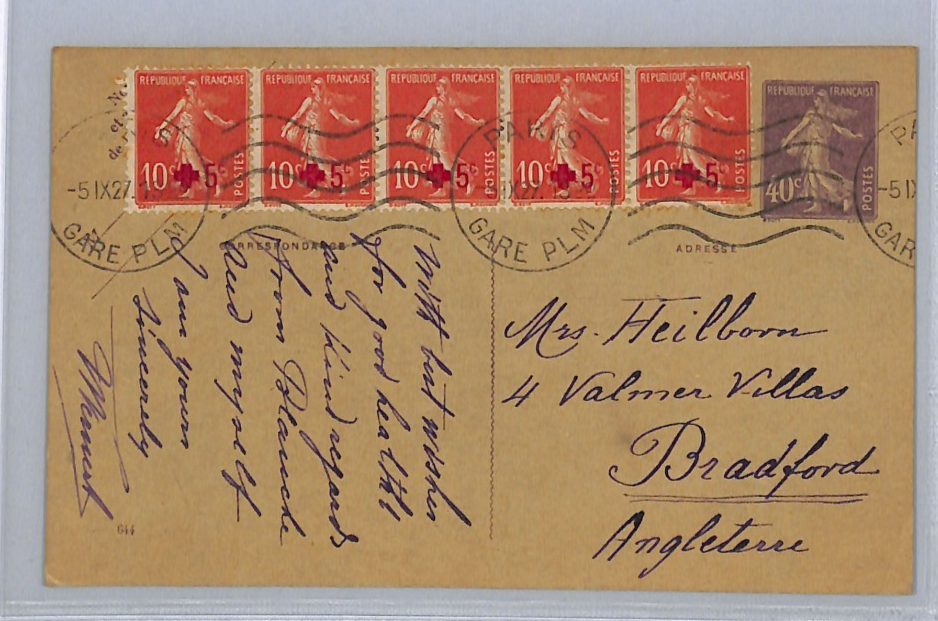 REPUBLIQUE FRANÇAISE
10c +5c
POSTES
REPUBLIQUE FRANÇAISE
10c +5c
POSTES
REPUBLIQUE FRANÇAISE
10c +5c
POSTES
REPUBLIQUE FRANÇAISE
10c +5c
POSTES
REPUBLIQUE FRANÇAISE
10c +5c
POSTES
REPUBLIQUE FRANÇAISE
40c
POSTES
-5 IX 27
GARE PLM
PARIS
IX 27
GARE PLM
PA
-5 IX
GAR
CORRESPONDANCE
ADRESSE
With best wishes
for good health
and kind regards
from Blanche
and myself
I am yours
sincerely
644
Mrs. Heilborn
4 Valmer Villas
Bradford
Angleterre